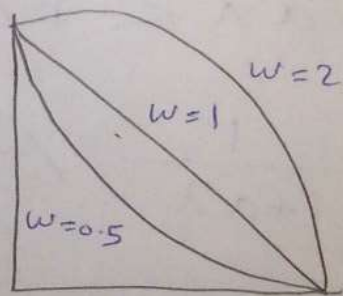 W=2
W=1
W=0.5